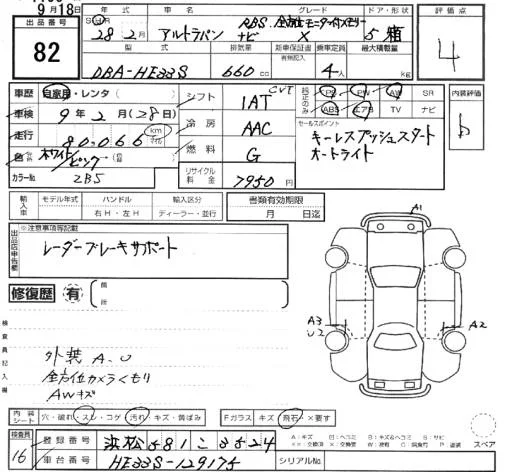 9月18日
出品番号
82
年式 車名 グレード ドア・形状 評価点
ABS. 全方位モニター付メモリー
28 2月 アルトラパン ナビ X 5 箱
4
型式 排気量 新車保証書 乗車定員 最大積載量
有無記入
DBA-HE33S 660 cc 4人 kg
車歴 自家用・レンタ
シフト CVT IAT
純正のみ PS PW AW SR
ABS エアB TV ナビ
内装評価
b
車検 9年2月(28日)
冷房 AAC
セールスポイント
キーレスプッシュスタート
オートライト
走行 80,066 km マイル
燃料 G
色 ホワイト/ピンク
カラーNo. ZBS
リサイクル料金 7950円
輸入車 モデル年式 ハンドル 輸入区分 書類有効期限
右H・左H ディーラー・並行 月 日迄
出品店申告欄
※注意事項等記載
レーダーブレーキサポート
修復歴 有 箇所
A1
A3
U2
A2
検査員記入欄
外装 A、U
全方位カメラくもり
AWキズ
内装シート 穴・破れ・スレ・コゲ 汚れ・キズ・黄ばみ Fガラス キズ 飛石・×要す
検査員
16
登録番号 浜松581こ3524
車台番号 HE33S-129175 シリアルNo.
A:キズ U:ヘコミ B:キズ&ヘコミ S:サビ
スペア